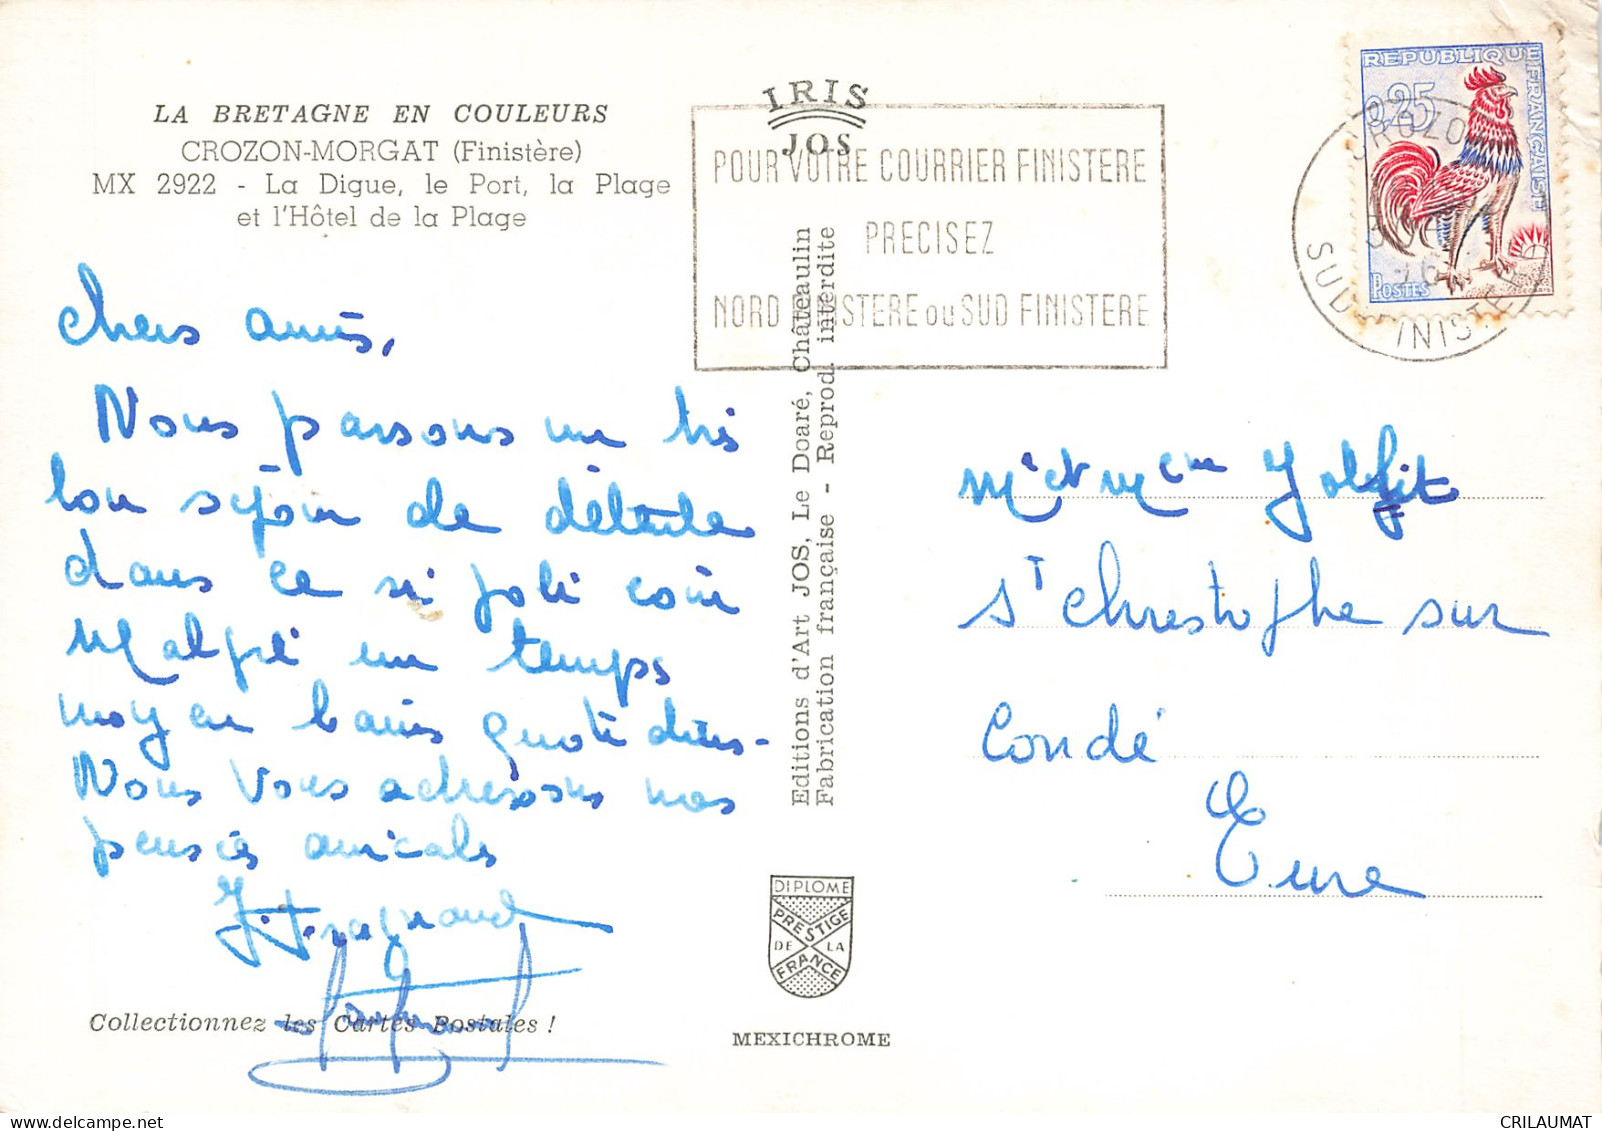 LA BRETAGNE EN COULEURS
CROZON-MORGAT (Finistère)
MX 2922 - La Digue, le Port, la Plage
et l'Hôtel de la Plage
Chers amis,
Nous passons un très
bon séjour de détente
dans ce si joli coin
Malgré un temps
moyen bains quotidiens-
Nous vous adressons nos
pensées amicales
Collectionnez les Cartes Postales !
IRIS
JOS
Editions d'Art JOS, Le Doaré, Châteaulin
Fabrication française - Reprod. interdite
DIPLOME
PRESTIGE
DE LA
FRANCE
MEXICHROME
POUR VOTRE COURRIER FINISTERE
PRECISEZ
NORD FINISTERE ou SUD FINISTERE
REPUBLIQUE
FRANÇAISE
0,25
POSTES
CROZON
SUD FINISTERE
Mr et Mme
St Christophe sur
Condé
Eure
CRILAUMAT